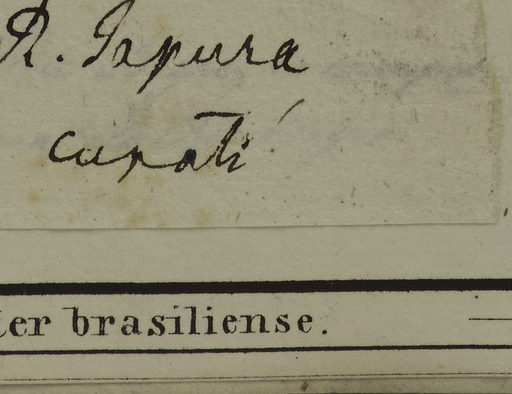 R. Japura
cupati
ter brasiliense.